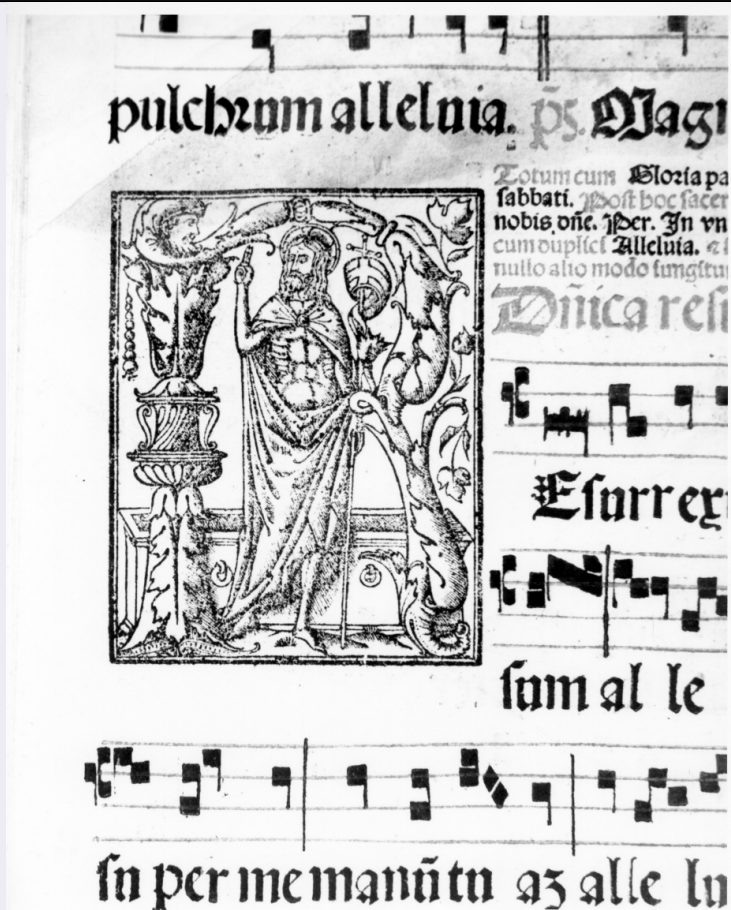 pulchrum alleluia. p̄s. Magn
Totum cum Gloria pa
sabbati. Post hoc sacer
nobis dn̄e. Per. In vn
cum duplici Alleluia.
nullo alio modo iungitur
Dn̄ica resu
Esurrexi
sum al le
su per me manū tu aʒ alle lu